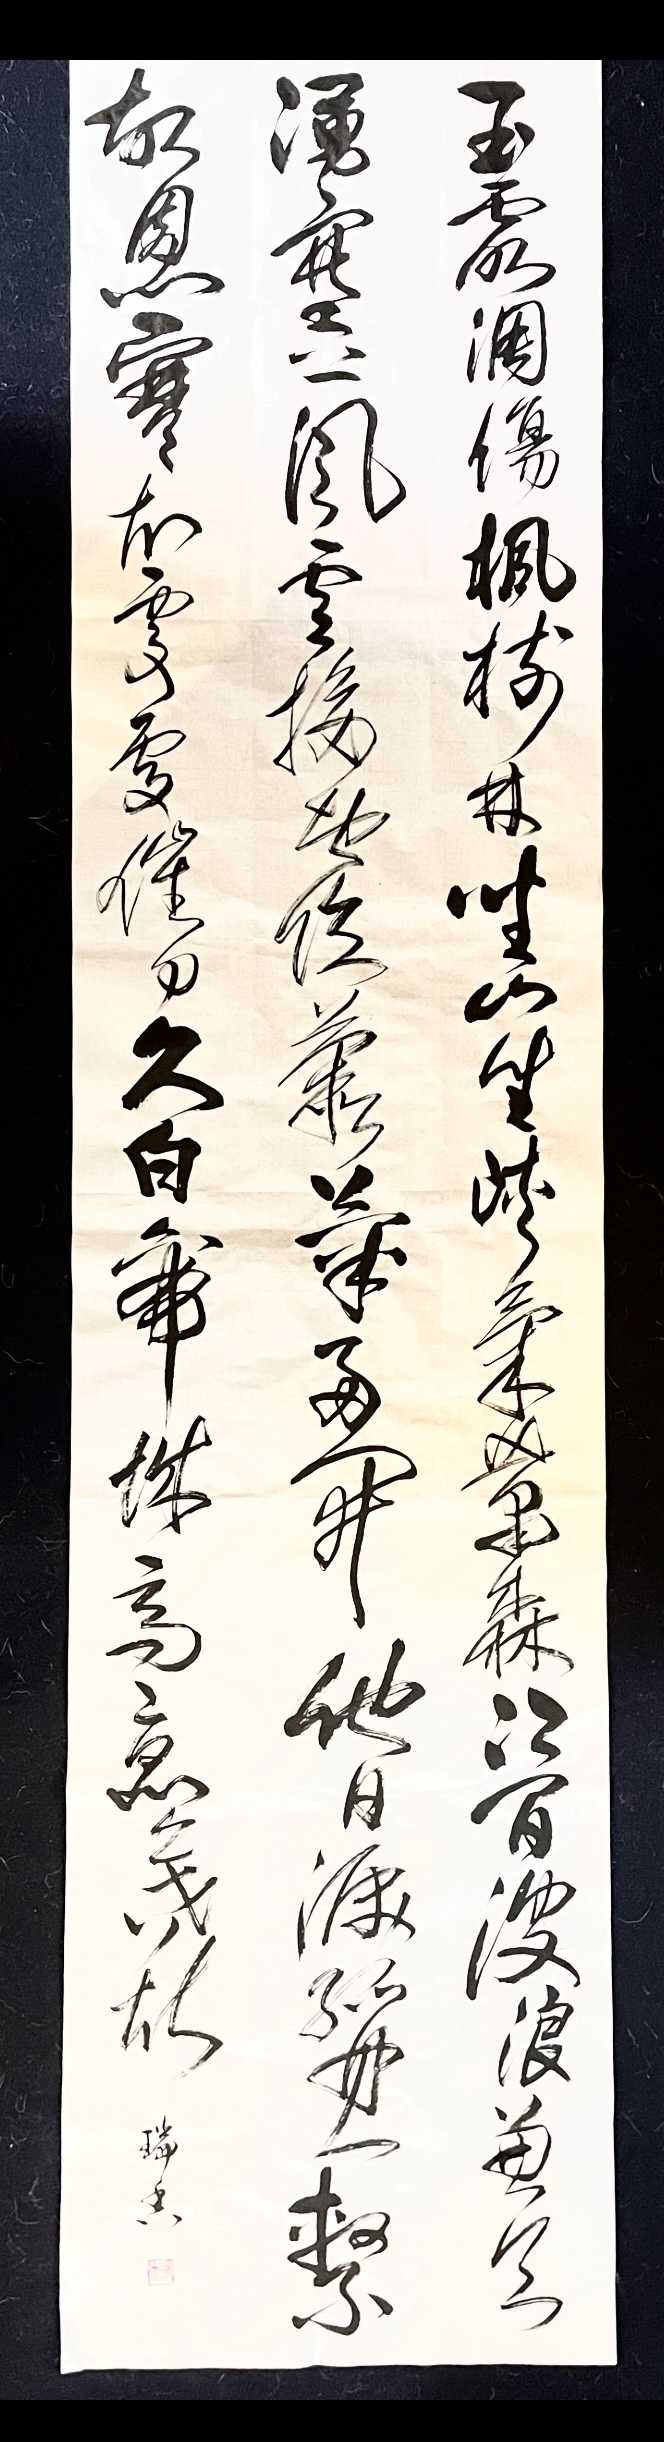 玉露凋傷楓樹林巫山巫峽氣蕭森江間波浪兼天
湧塞上風雲接地陰叢菊兩開他日淚孤舟一繫
故園心寒衣處處催刀尺白帝城高急暮砧
瑞香